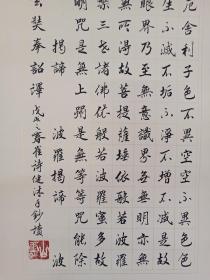 厄舍利子色不異空空不異色色
生不滅不垢不淨不增不減是故
眼界乃至無意識界無無明亦無
無所得故菩提薩埵依般若波羅
槃三世諸佛依般若波羅蜜多故
明咒是無上咒是無等等咒能除
揭諦 波羅揭諦 波
玄奘奉詔譯 戊戌之春崔詩健沐手鈔